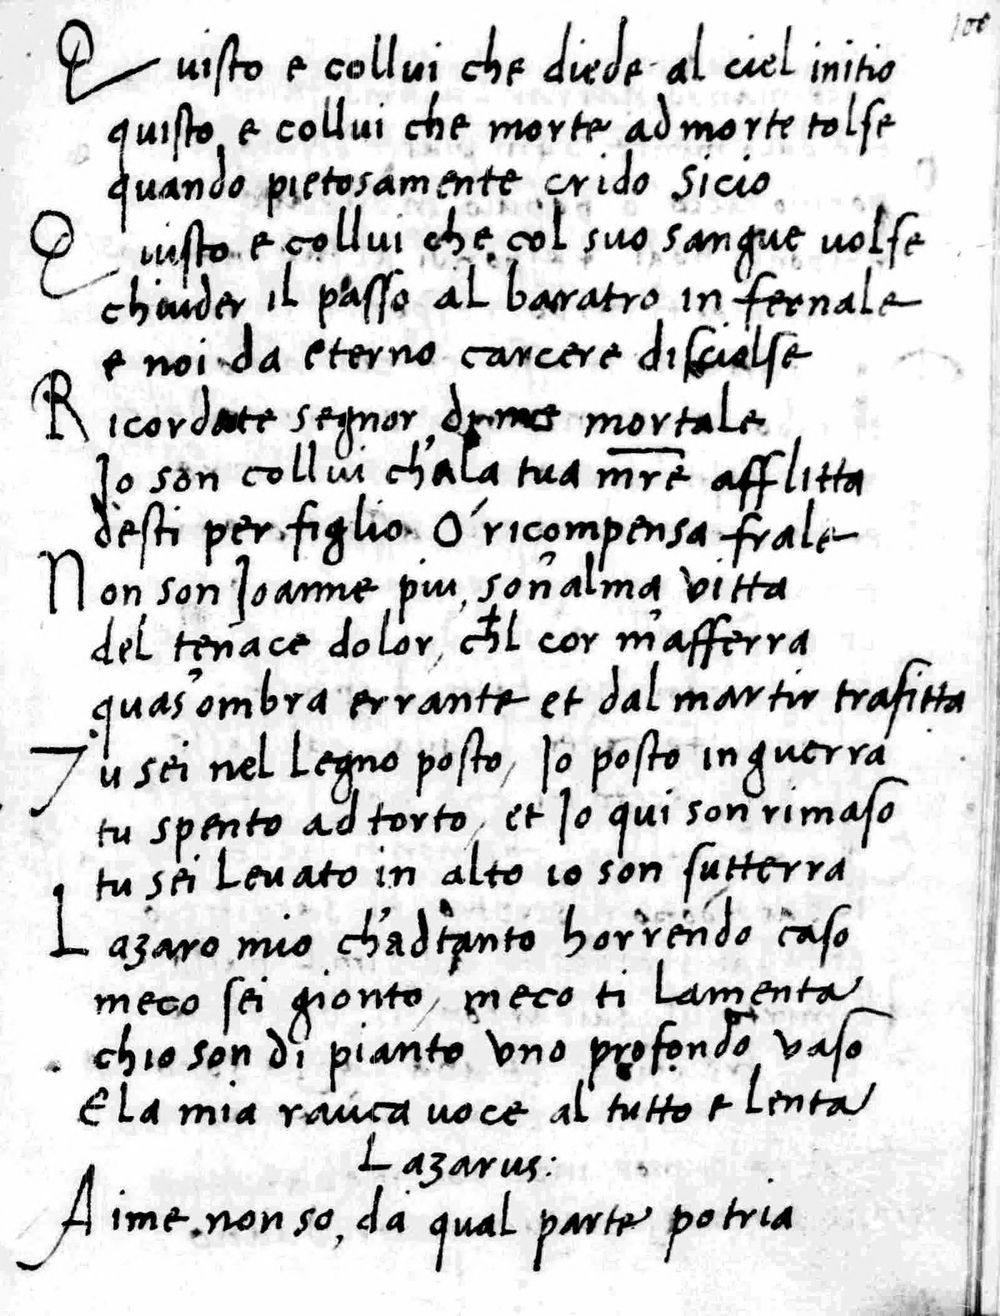 Quisto e collui che diede al ciel initio
quisto e collui che morte ad morte tolse
quando pietosamente crido Sicio
Quisto e collui che col suo sangue volse
chiuder il passo al baratro in fernale
e noi da eterno carcere discielse
Ricordate segnor, de me mortale
Io son collui ch'ala tua mr̄e afflitta
desti per figlio O ricompensa frale
Non son Joanne piu, son alma vitta
del tenace dolor, ch̄l cor m'afferra
quas'ombra errante et dal martir trafitta
Tu sei nel legno posto, Io posto in guerra
tu spento ad torto, et Io qui son rimaso
tu sei Levato in alto io son sutterra
Lazaro mio ch'ad tanto horrendo caso
meco sei gionto, meco ti Lamenta
chio son di pianto uno profondo vaso
E la mia rauca voce al tutto e lenta
Lazarus:
Aime non so, da qual parte potria